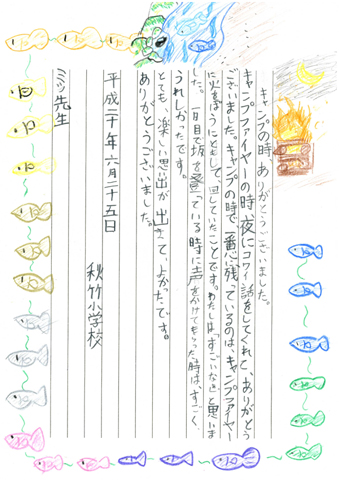 キャンプの時、ありがとうございました。
キャンプファイヤーの時、夜にコワイ話をしてくれて、ありがとう
ございました。キャンプの時で一番心に残っているのは、キャンプファイヤー
に火をぼうにともして、回していたことです。わたしは「すごいなぁ」と思いま
した。一日目で坂を登っている時に声をかけてもらった時は、すごく、
うれしかったです。
とても、楽しい思い出が出きて、よかったです。
ありがとうございました。
平成二十年六月二十五日
秋竹小学校
ミッ先生